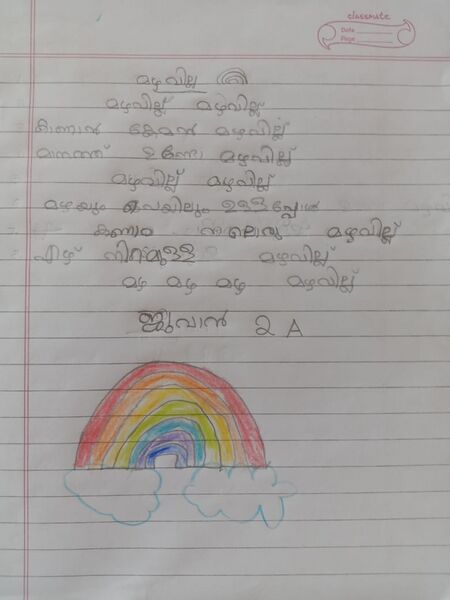 classmate
Date
Page
മഴവില്ല
മഴവില്ല് മഴവില്ല്
കാണാൻ കേമൻ മഴവില്ല്
മാനത്ത് ഉണ്ടേ മഴവില്ല്
മഴവില്ല് മഴവില്ല്
മഴയും വെയിലും ഉള്ളപ്പോൾ
കണാം നല്ലൊരു മഴവില്ല്
ഏഴ് നിറമുള്ള മഴവില്ല്
മഴ മഴ മഴ മഴവില്ല്
ജുവാൻ 2 A